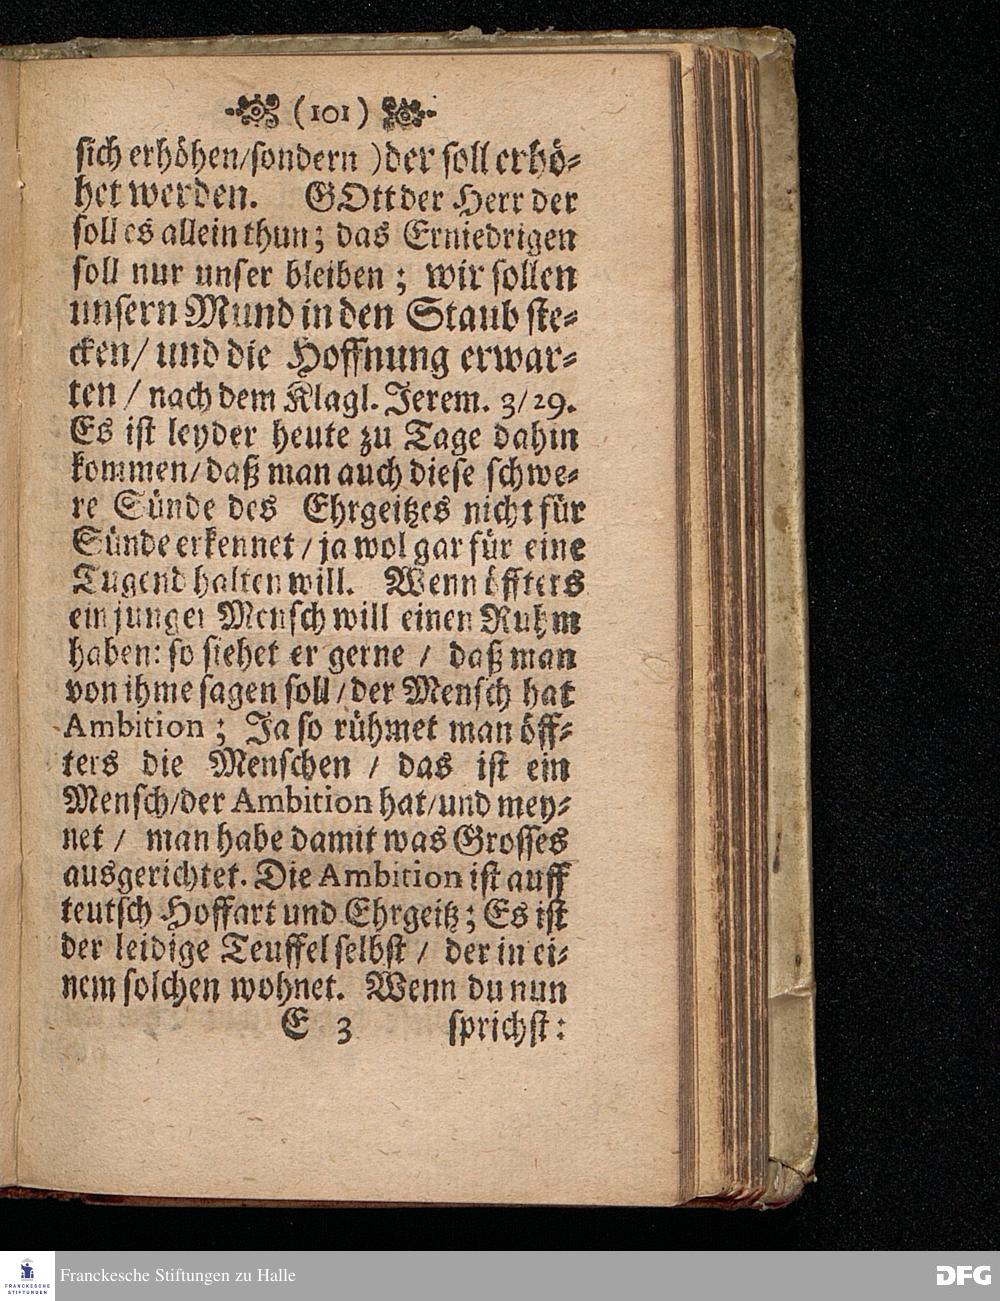 (101)
sich erhöhen/sondern )der soll erhö-
het werden. GOtt der Herr der
soll es allein thun; das Erniedrigen
soll nur unser bleiben; wir sollen
unsern Mund in den Staub ste-
cken/ und die Hoffnung erwar-
ten / nach dem Klagl. Jerem. 3/29.
Es ist leyder heute zu Tage dahin
kommen/daß man auch diese schwe-
re Sünde des Ehrgeitzes nicht für
Sünde erkennet / ja wol gar für eine
Tugend halten will. Wenn öffters
ein junger Mensch will einen Ruhm
haben: so siehet er gerne / daß man
von ihme sagen soll/der Mensch hat
Ambition; Ja so rühmet man öff-
ters die Menschen / das ist ein
Mensch/der Ambition hat/und mey-
net / man habe damit was Grosses
ausgerichtet. Die Ambition ist auff
teutsch Hoffart und Ehrgeitz; Es ist
der leidige Teuffel selbst / der in ei-
nem solchen wohnet. Wenn du nun
E 3 sprichst:
FRANCKESCHE
STIFTUNGEN
Franckesche Stiftungen zu Halle
DFG